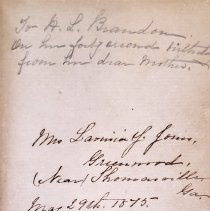 To H. L. Brandon
On her forty second birthday
from her dear Mother.
Mrs Lavinia Y. Jones,
Greenwood,
(Near) Thomasville
Ga.
29th. 1875.